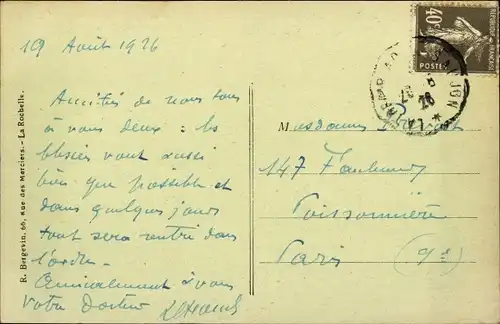 19 Août 1926
Amitiés de nous tous
à vous deux : les
blessés vont aussi
bien que possible et
dans quelques jours
tout sera rentré dans
l'ordre.
Amicalement à vous
Votre Docteur
R. Bergevin, 66, Rue des Merciers. - La Rochelle.
40c
POSTES
REPUBLIQUE FRANÇAISE
Mesdames
147 Faubourg
Poissonnière
Paris (9e)